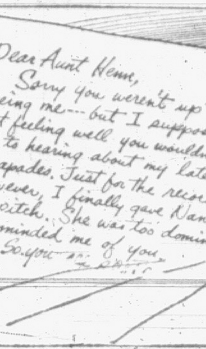 Dear Aunt Henn,
Sorry you weren't up
eing me--- but I suppos
t feeling well you wouldn
to hearing about my late
apades. Just for the recor
ever, I finally gave Nan
pitch. She was too domin
minded me of you.
So you